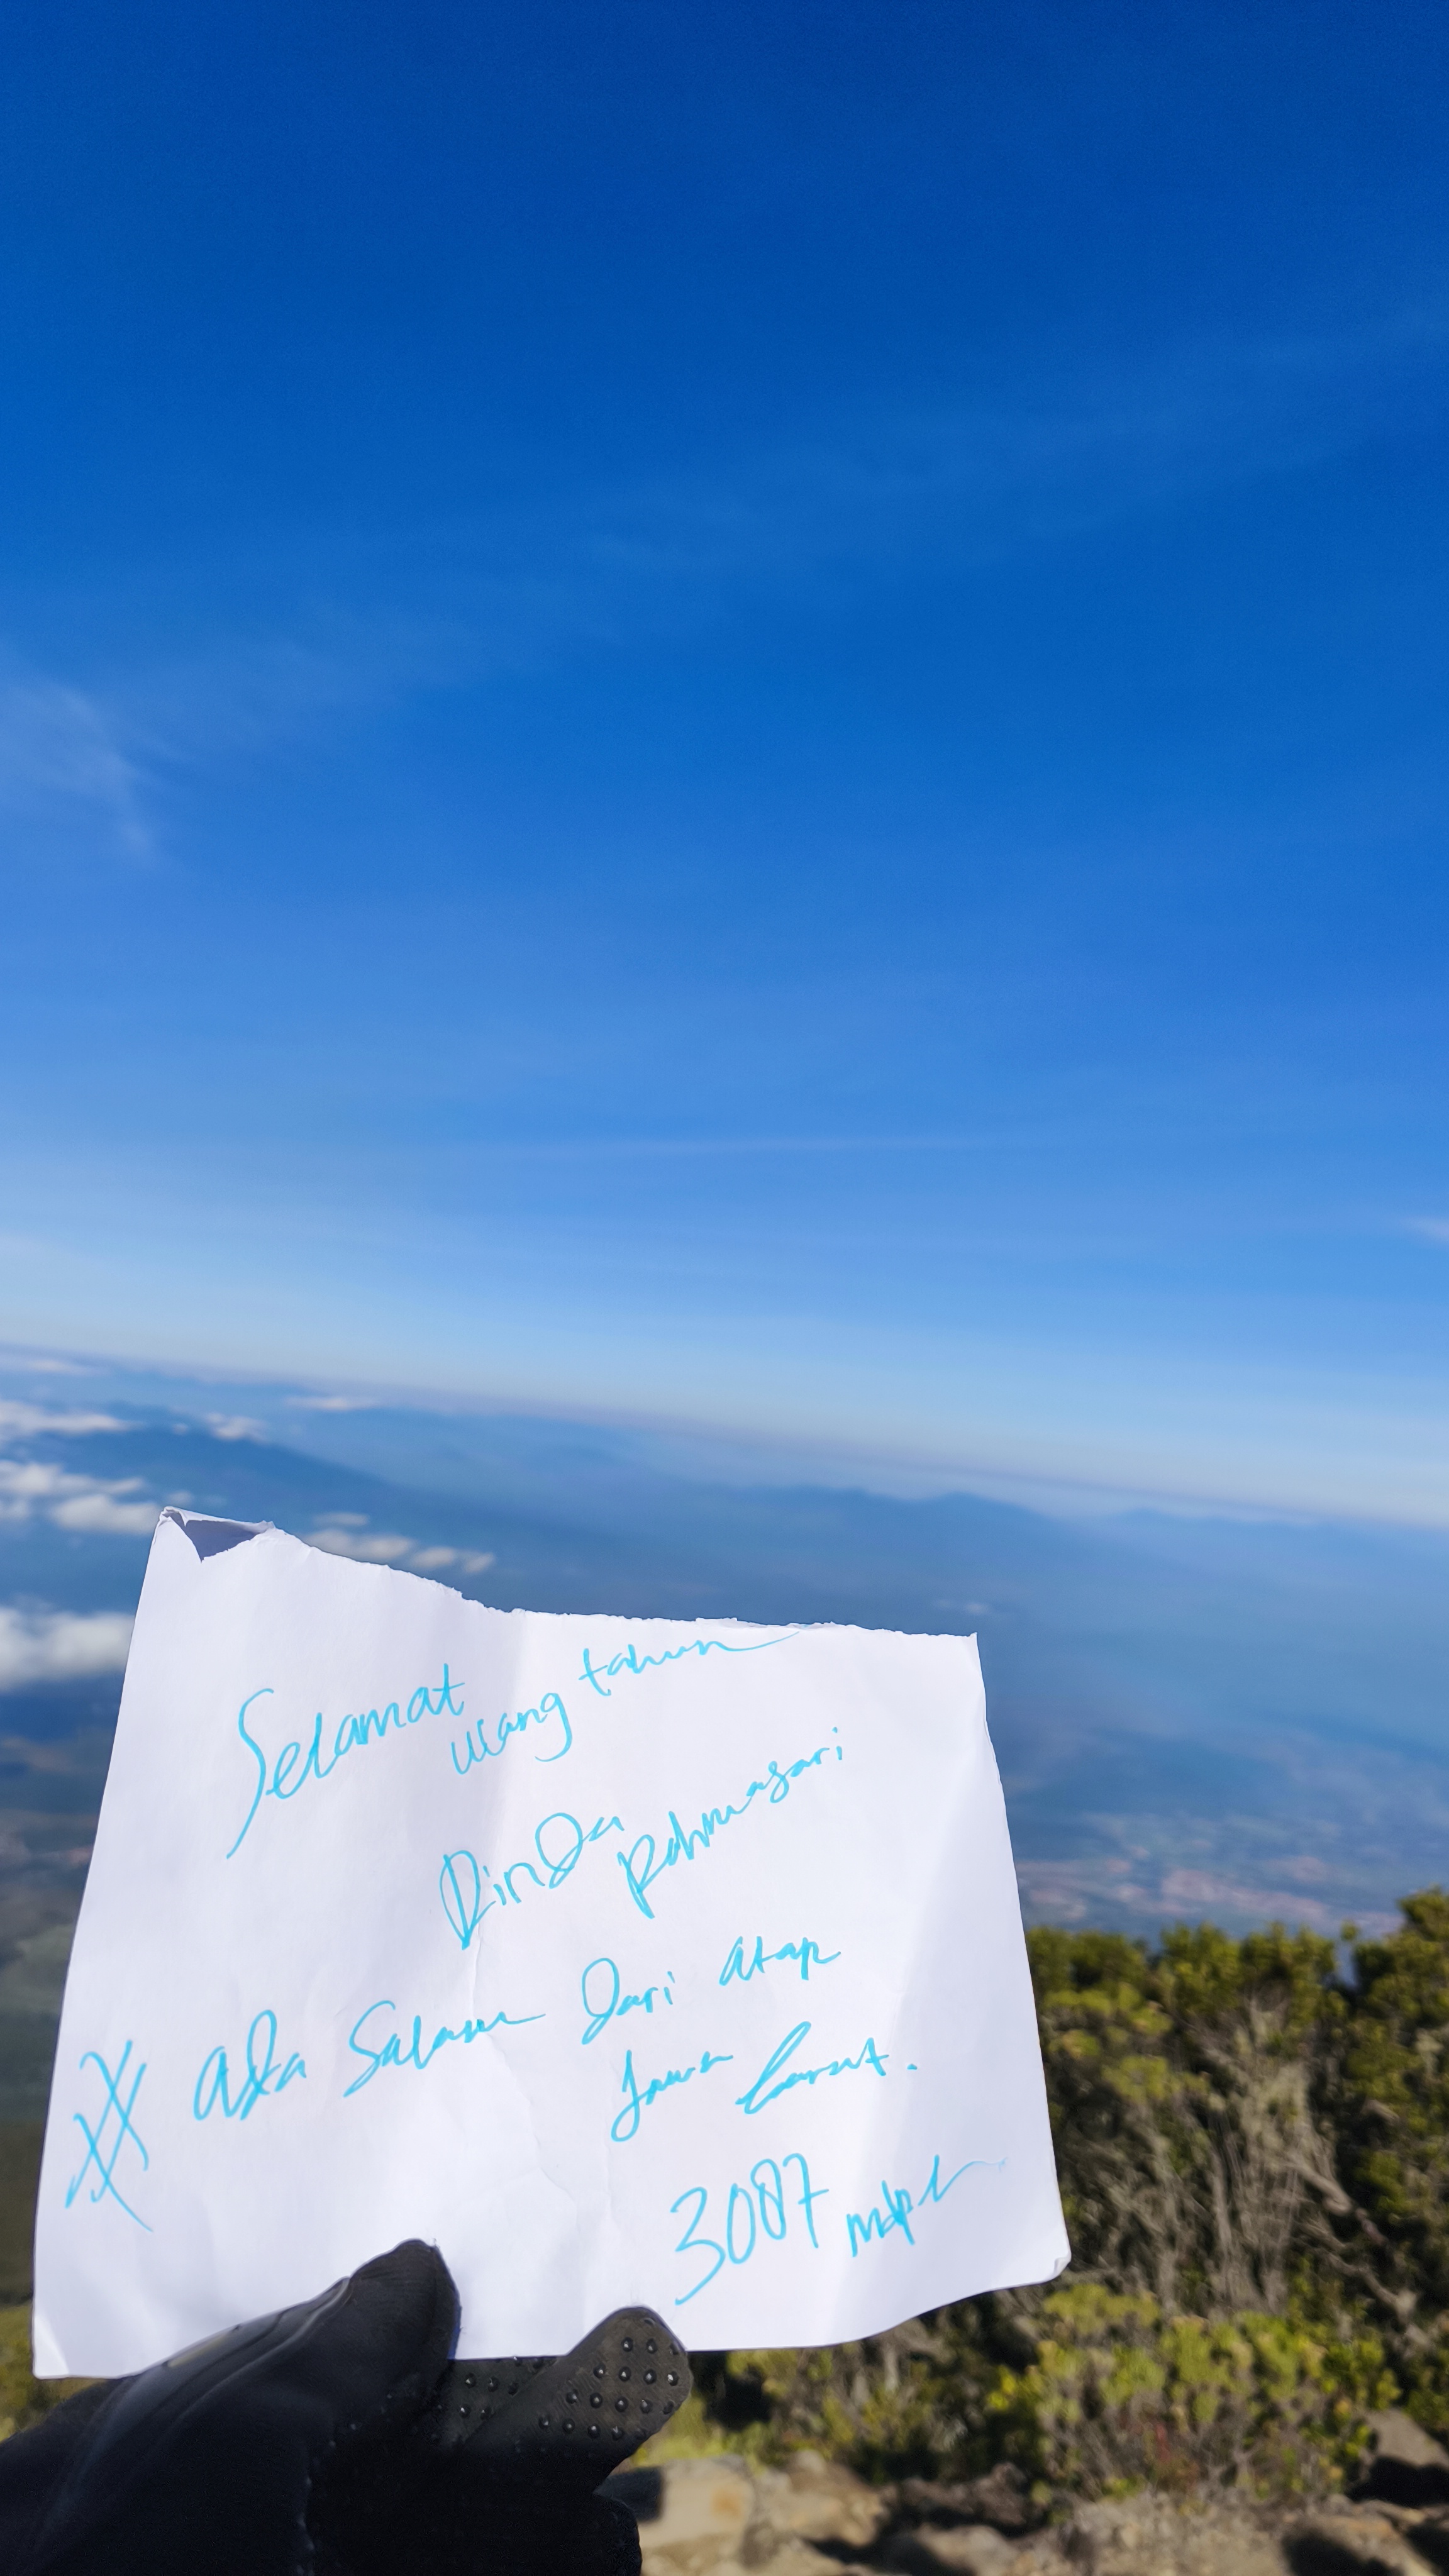 Selamat ulang tahun
Dinda Rahmasari
Ada Salam Dari atap
Jawa barat.
3087 mdpl